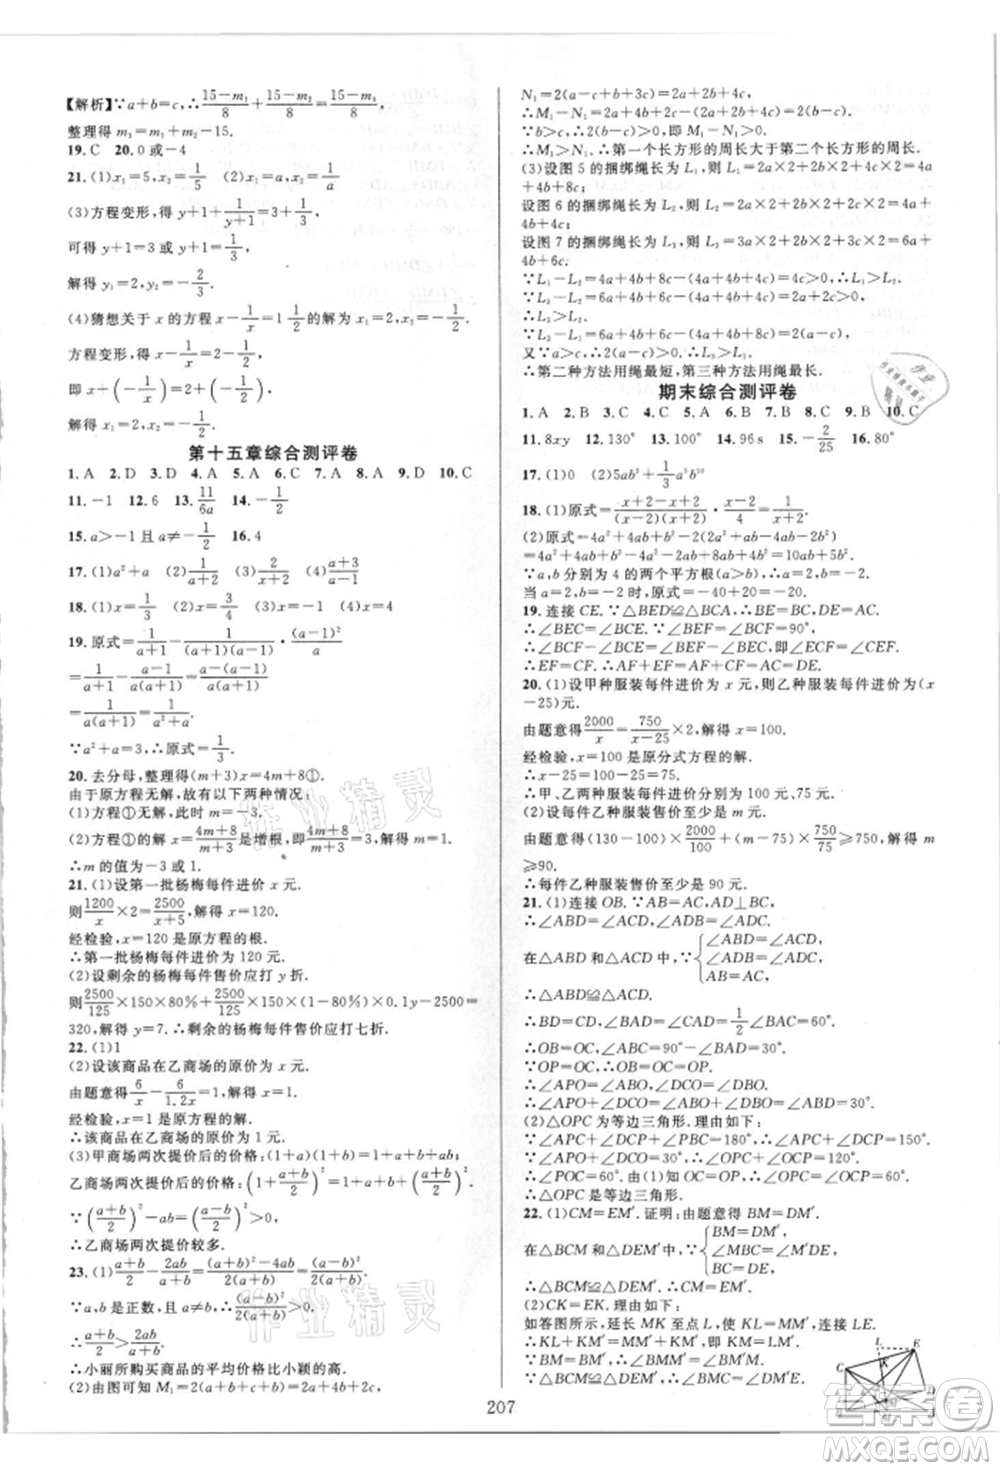 【解析】∵a+b=c,∴(15-m₁)/8+(15-m₂)/8=(15-m₃)/8,
整理得 m₃=m₁+m₂-15.
19.C 20.0或-4
21.(1)x₁=5,x₂=1/5 (2)x₁=a,x₂=1/a
(3)方程变形,得 y+1+1/(y+1)=3+1/3,
可得 y+1=3 或 y+1=1/3,
解得 y₁=2,y₂=-2/3.
(4)猜想关于 x 的方程 x-1/x=1 1/2的解为 x₁=2,x₂=-1/2.
方程变形,得 x-1/x=2-1/2,
即 x+(-1/x)=2+(-1/2),
解得 x₁=2,x₂=-1/2.
第十五章综合测评卷
1.A 2.D 3.D 4.A 5.A 6.C 7.A 8.A 9.D 10.C
11.-1 12.6 13.11/(6a) 14.-1/2
15.a>-1 且 a≠-1/2 16.4
17.(1)a²+a (2)1/(a+2) (3)(a+2)/(a-1)
18.(1)x=1/2 (2)x=4
19.原式=1/(a+1)-(a+1)/((a+1)(a-1))·(a-1)²/a
=1/(a+1)-(a-1)/a
=1/(a(a+1))=1/(a²+a).
∵a²+a=2,∴原式=1/2.
20.去分母,整理得(m+3)x=4m+8①.
由于原方程无解,故有以下两种情况:
(1)方程①无解,此时 m=-3.
(2)方程①的解 x=(4m+8)/(m+3)是增根,即(4m+8)/(m+3)=3,解得 m=1.
∴m 的值为-3 或 1.
21.(1)设第一批杨梅每件进价 x 元.
则1200/x×2=2500/(x+5),解得 x=120.
经检验,x=120 是原方程的根.
∴第一批杨梅每件进价为 120 元.
(2)设剩余的杨梅每件售价应打 y 折.
则2500/125×150×80%+2500/125×150×(1-80%)×0.1y-2500=
320,解得 y=7.∴剩余的杨梅每件售价应打七折.
22.(1)1
(2)设该商品在乙商场的原价为 x 元.
由题意得6/x-6/(1.2x)=1,解得 x=1.
经检验,x=1 是原方程的解.
∴该商品在乙商场的原价为 1 元.
(3)甲商场两次提价后的价格:(1+a)(1+b)=1+a+b+ab.
乙商场两次提价后的价格:(1+(a+b)/2)²=1+a+b+((a+b)/2)².
∵((a+b)/2)²-ab=((a-b)/2)²>0,
∴乙商场两次提价较多.
23.(1)(a+b)/2-2ab/(a+b)=((a+b)²-4ab)/(2(a+b))=(a-b)²/(2(a+b)).
∵a,b 是正数,且 a≠b,∴(a-b)²/(2(a+b))>0.
∴(a+b)/2>2ab/(a+b).
∴小丽所购买商品的平均价格比小颖的高.
(2)由图可知 M₁=2(a+b+c+b)=2a+4b+2c,
N₁=2(a-b+b+3c)=2a+2b+4c,
∴M₁-N₁=2a+4b+2c-(2a+2b+4c)=2(b-c).
∵b>c,∴2(b-c)>0,即 M₁-N₁>0,
∴M₁>N₁.∴第一个长方形的周长大于第二个长方形的周长.
(3)设图 5 的捆绑绳长为 L₁,则 L₁=2a×2+2b×2+4c×2=4a+
4b+8c;
设图 6 的捆绑绳长为 L₂,则 L₂=2a×2+2b×2+2c×2=4a+
4b+4c;
设图 7 的捆绑绳长为 L₃,则 L₃=3a×2+2b×2+3c×2=6a+
4b+6c.
∵L₁-L₂=4a+4b+8c-(4a+4b+4c)=4c>0,
∴L₁>L₂.
∵L₃-L₁=6a+4b+6c-(4a+4b+8c)=2(a-c),
又∵a>c,∴2(a-c)>0.∴L₃>L₁.∴L₃>L₁>L₂.
∴第二种方法用绳最短,第三种方法用绳最长.
期末综合测评卷
1.A 2.B 3.C 4.C 5.C 6.D 7.B 8.C 9.B 10.C
11.8xy 12.130° 13.100° 14.96 s 15.-2/25 16.80°
17.(1)0 (2)5ab³+1/3a²b¹⁰
18.(1)原式=(x+2+x-2)/((x-2)(x+2))·(x-2)/4=1/(x+2)
(2)原式=4a²+4ab+b²-(2a²+ab-4ab-2b²)
=4a²+4ab+b²-2a²-ab+4ab+2b²-2a²-2b²=10ab+4b².
∵a,b 分别为 4 的两个平方根(a>b),∴a=2,b=-2.
当 a=2,b=-2 时,原式=-40+20=-20.
19.连接 CE.∵△BED≌△BCA,∴BE=BC,DE=AC.
∴∠BEC=∠BCE.∵∠BEF=∠BCF=90°,
∴∠BCF-∠BCE=∠BEF-∠BEC.∴∠FCE=∠FEC.
∴EF=CF.∴CF+DF=EF+DF=DE=AC.
20.(1)设甲种服装每件进价为 x 元,则乙种服装每件进价为(x
-25)元.
由题意得2000/x=750/(x-25)×2,解得 x=100.
经检验,x=100 是原分式方程的解.
∴x-25=100-25=75.
∴甲、乙两种服装每件进价分别为 100 元、75 元.
(2)设每件乙种服装售价至少是 m 元.
由题意得(130-100)×2000/100+(m-75)×750/75≥750,解得 m
≥90.
∴每件乙种服装售价至少是 90 元.
21.(1)连接 OB.∵AB=AC,AD⊥BC,
∴∠ABD=∠ACD,∠BAD=∠CAD.
在△ABD 和△ACD 中,∵{∠ABD=∠ACD,
∠BAD=∠CAD,
AB=AC,
∴△ABD≌△ACD.
∴BD=CD,∠BAD=∠CAD=1/2∠BAC=60°.
∴OB=OC,∠ABC=90°-∠BAD=30°.
∵OP=OC,∴OB=OC=OP.
∴∠APO=∠ABO,∠DCO=∠DBO.
∴∠APO+∠DCO=∠ABO+∠DBO=∠ABD=30°.
(2)△OPC 为等边三角形.理由如下:
∵∠APC+∠DCP+∠PBC=180°,∴∠APC+∠DCP=150°.
∵∠APO+∠DCO=30°,∴∠OPC+∠OCP=120°.
∴∠POC=60°.由(1)知 OP=OC,
∴△OPC 是等边三角形.
22.(1)CM=EM′.证明:由题意得 BM=DM′.
在△BCM 和△EDM′中,∵{BM=DM′,
∠B=∠MDE,
BC=DE,
∴△BCM≌△EDM′.∴CM=EM′.
(2)CK=EK.理由如下:
如答图,延长 MK 至点 L,使 KL=MM′,连接 LE.
∴KL+KM=MM′+KM,即 KM′=LM.
∵BM=DM′,∴BM+MM′=DM′+MM′.
∴BM′=DM.∵BM′=KM′,∴LM=DM.
207
作业精灵
答案圈
MXQE.COM